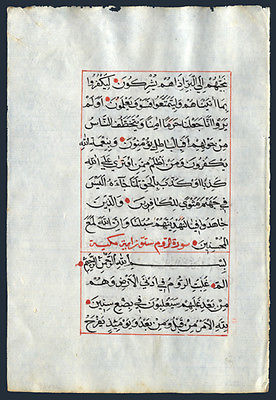 نجيهم إلى البر إذا هم يشركون ليكفروا
بما آتيناهم وليتمتعوا فسوف يعلمون أولم
يروا أنا جعلنا حرما آمنا ويتخطف الناس
من حولهم أفبالباطل يؤمنون وبنعمة الله
يكفرون ومن أظلم ممن افترى على الله
كذبا أو كذب بالحق لما جاءه أليس
في جهنم مثوى للكافرين والذين
جاهدوا فينا لنهدينهم سبلنا وإن الله لمع
المحسنين سورة الروم ستون آية مكية
بسم الله الرحمن الرحيم
الم غلبت الروم في أدنى الأرض وهم
من بعد غلبهم سيغلبون في بضع سنين
لله الأمر من قبل ومن بعد ويومئذ يفرح